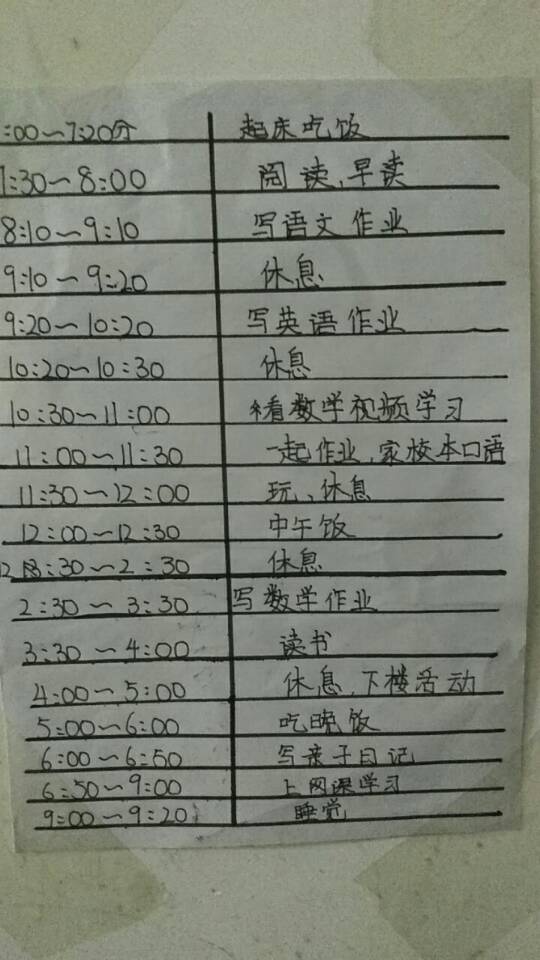 :00～7:20分 起床吃饭
7:30～8:00 阅读、早读
8:10～9:10 写语文作业
9:10～9:20 休息
9:20～10:20 写英语作业
10:20～10:30 休息
10:30～11:00 看数学视频学习
11:00～11:30 一起作业、家校本口语
11:30～12:00 玩、休息
12:00～12:30 中午饭
12:30～2:30 休息
2:30～3:30 写数学作业
3:30～4:00 读书
4:00～5:00 休息、下楼活动
5:00～6:00 吃晚饭
6:00～6:50 写亲子日记
6:50～9:00 上网课学习
9:00～9:20 睡觉